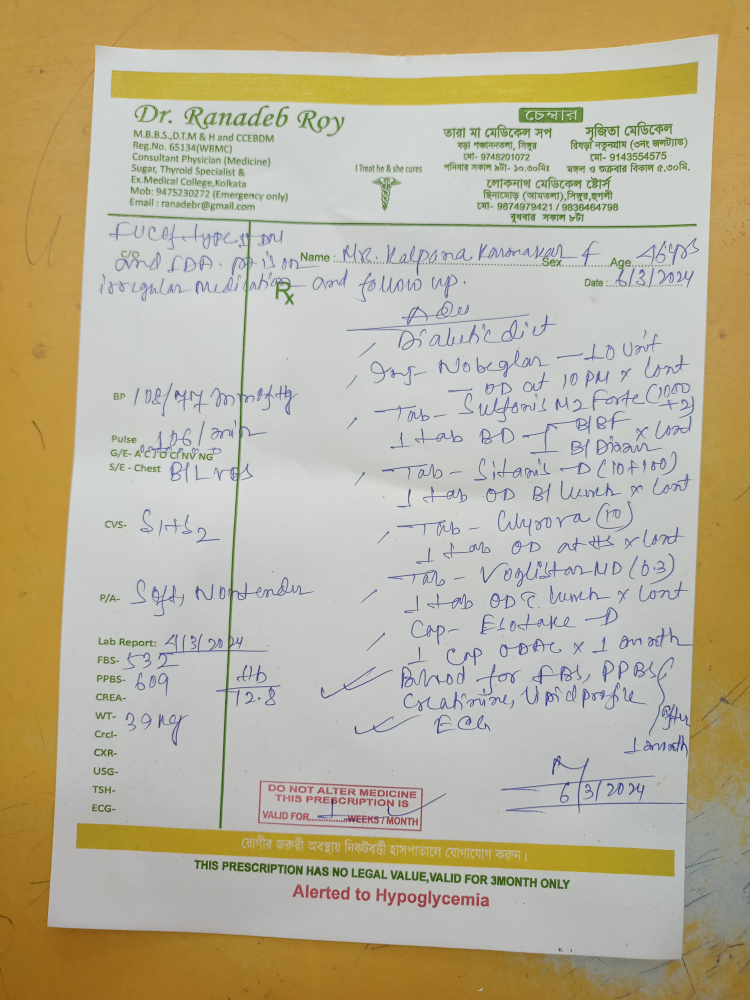 Dr. Ranadeb Roy
M.B.B.S.,D.T.M & H and CCEBDM
Reg.No. 65134(WBMC)
Consultant Physician (Medicine)
Sugar, Thyroid Specialist &
Ex.Medical College,Kolkata
Mob: 9475230272 (Emergency only)
Email : ranadebr@gmail.com
I Treat he & she cures
চেম্বার
তারা মা মেডিকেল সপ
বড়া পঞ্চাননতলা, সিঙ্গুর
মো- 9748201072
শনিবার সকাল ৯টা- ১০.৩০মিঃ
সৃজিতা মেডিকেল
রিষড়া নতুনগ্রাম (৩নং জলট্যাঙ্ক)
মো- 9143554575
মঙ্গল ও শুক্রবার বিকাল ৫.৩০মি.
লোকনাথ মেডিকেল ষ্টোর্স
ছিনামোড় (আমতলা),সিঙ্গুর,হুগলী
মো- 9874979421 / 9836464798
বুধবার সকাল ৮টা
C/O
F/UC of Type II DM
and IDA. pt is on
irregular medication and follow up.
Name : Mrs. Kalpana Karmakar Sex f Age 46yrs
Date : 6/3/2024
Rx
Adv
Diabetic diet
Inj- Nobeglar — 10 Unit
— OD at 10 PM x Cont
Tab- Sulfonis M2 Forte (1000+2)
1 tab BD - 1 B/BF
1 B/Dinner x Cont
Tab - Sitanis -D (10+100)
1 tab OD B/ lunch x Cont
Tab - (10)
1 tab OD at HS x Cont
Tab - Voglistar MD (0.3)
1 tab OD c lunch x Cont
Cap- Esotake -D
1 Cap OD AC x 1 month
Blood for FBS, PPBS
Creatinine, Lipid profile
ECG
after
1 month
6/3/2024
BP 108/77 mmofHg
Pulse 106/min
G/E- A C J O CI NV NG
S/E - Chest B/L VBS
CVS- S1+S2
P/A- Soft, Nontender
Lab Report: 4/3/2024
FBS- 532
PPBS- 609
Hb
12.8
CREA-
WT- 39 kg
Crcl-
CXR-
USG-
TSH-
ECG-
DO NOT ALTER MEDICINE
THIS PRESCRIPTION IS
VALID FOR 1 WEEKS / MONTH
রোগীর জরুরী অবস্থায় নিকটবর্তী হাসপাতালে যোগাযোগ করুন।
THIS PRESCRIPTION HAS NO LEGAL VALUE,VALID FOR 3MONTH ONLY
Alerted to Hypoglycemia